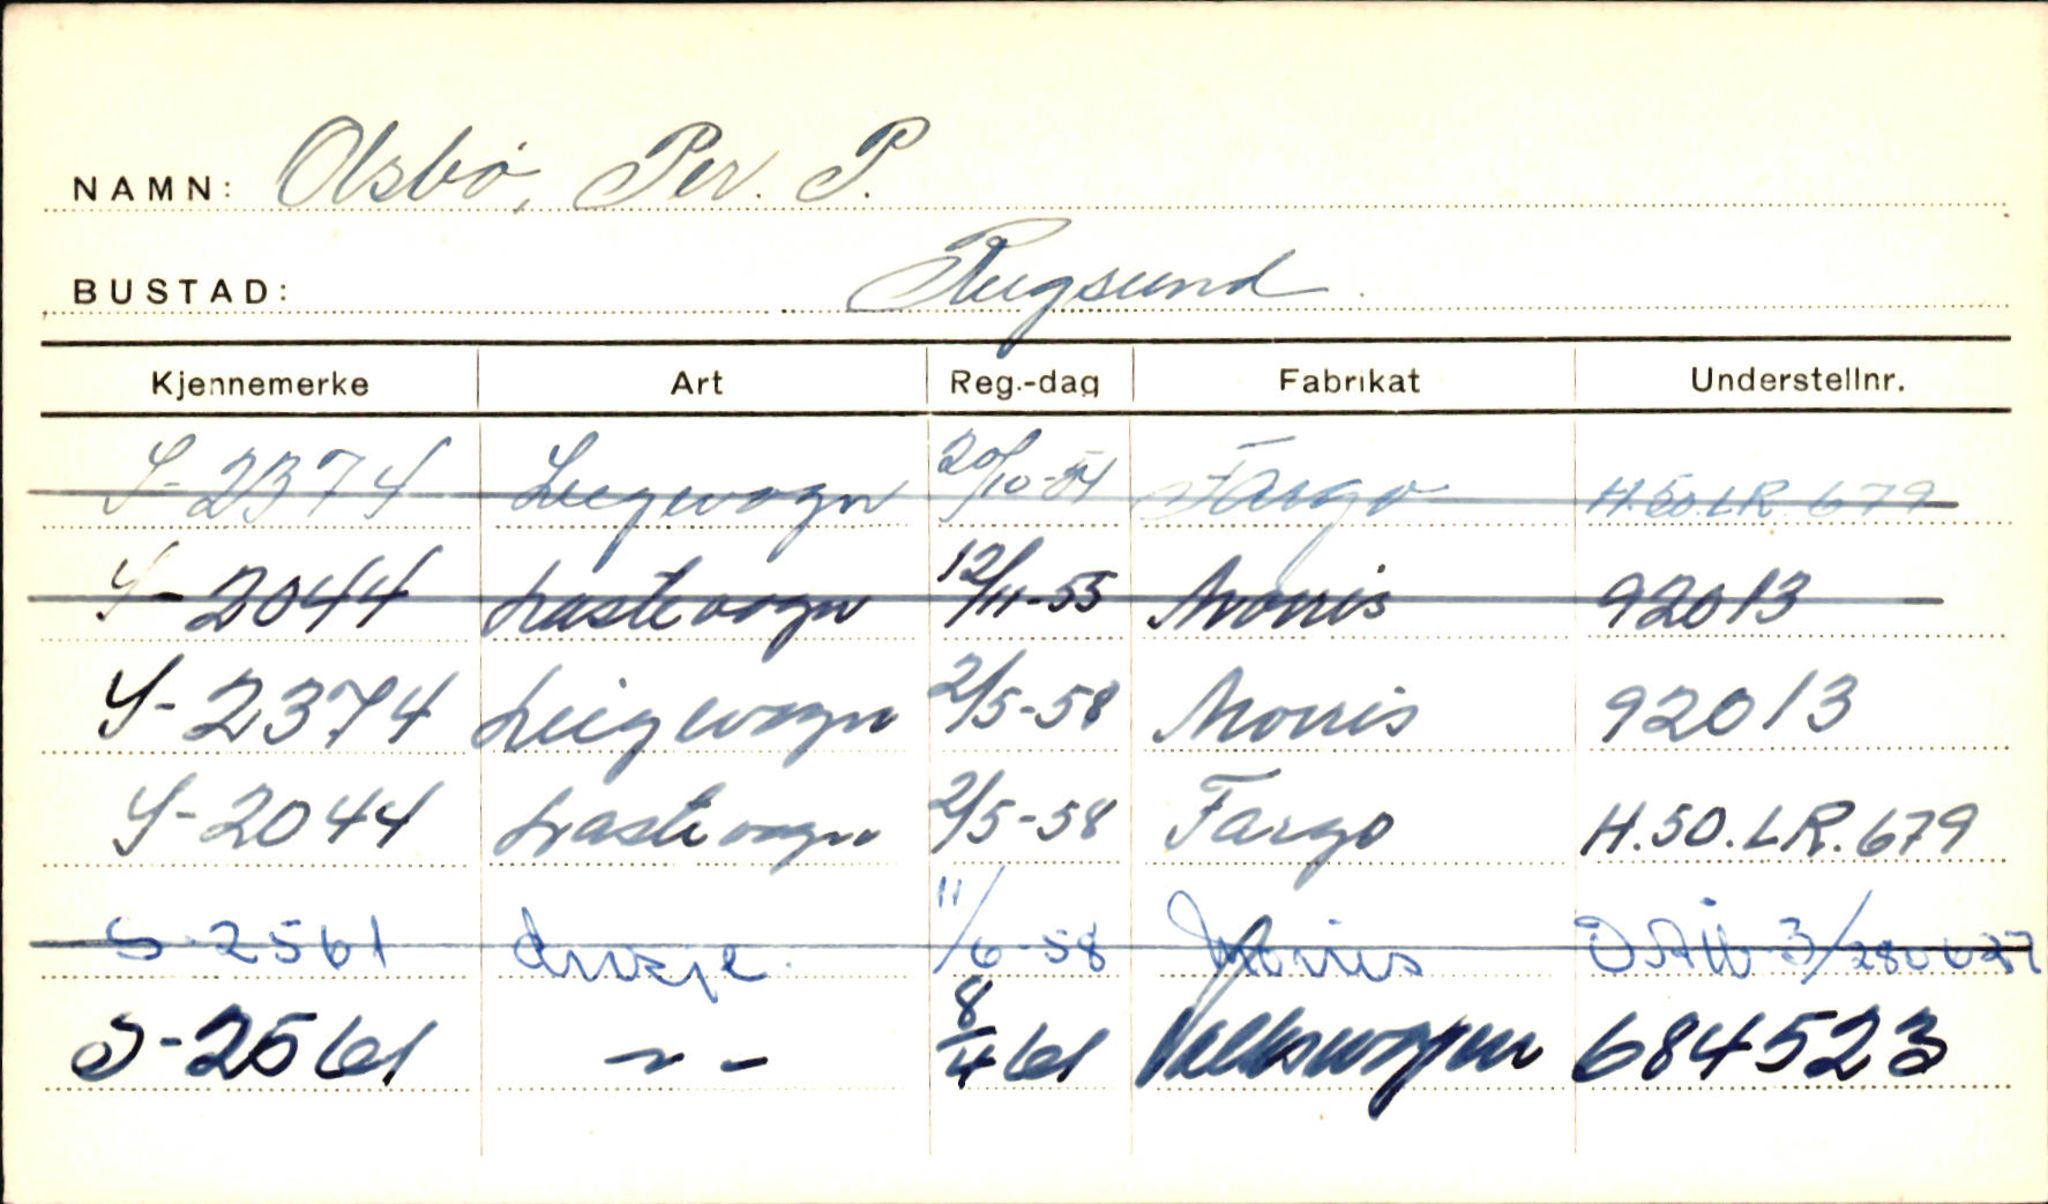 NAMN: Olsbö, Per. P.
BUSTAD: Rugsund
Kjennemerke Art Reg.-dag Fabrikat Understellnr.
S-2374 Leigevogn 20/10-54 Fargo H.50.LR.679
S-2044 Lastevogn 12/11-55 Morris 92013
S-2374 Leigevogn 2/5-58 Morris 92013
S-2044 Lastevogn 2/5-58 Fargo H.50.LR.679
S-2561 drosje. 11/6-58 Morris
S-2561 -"- 8/4 61 Volkswagen 684523